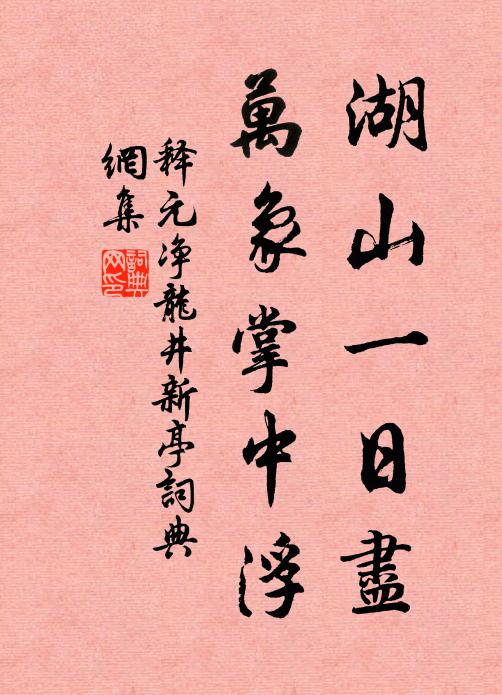 湖山一日盡
萬象掌中浮
释元净龍井新亭詞典
網集
詞典網印